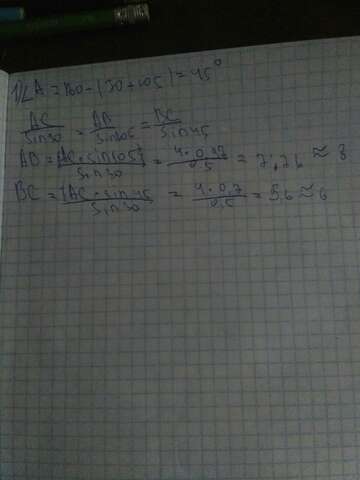 1) ∠A = 180 - (30 + 105) = 45°
AC/sin30 = AB/sin105 = BC/sin45
AB = AC · sin105/sin30 = 4 · 0,97/0,5 = 7,76 ≈ 8
BC = AC · sin45/sin30 = 4 · 0,7/0,5 = 5,6 ≈ 6